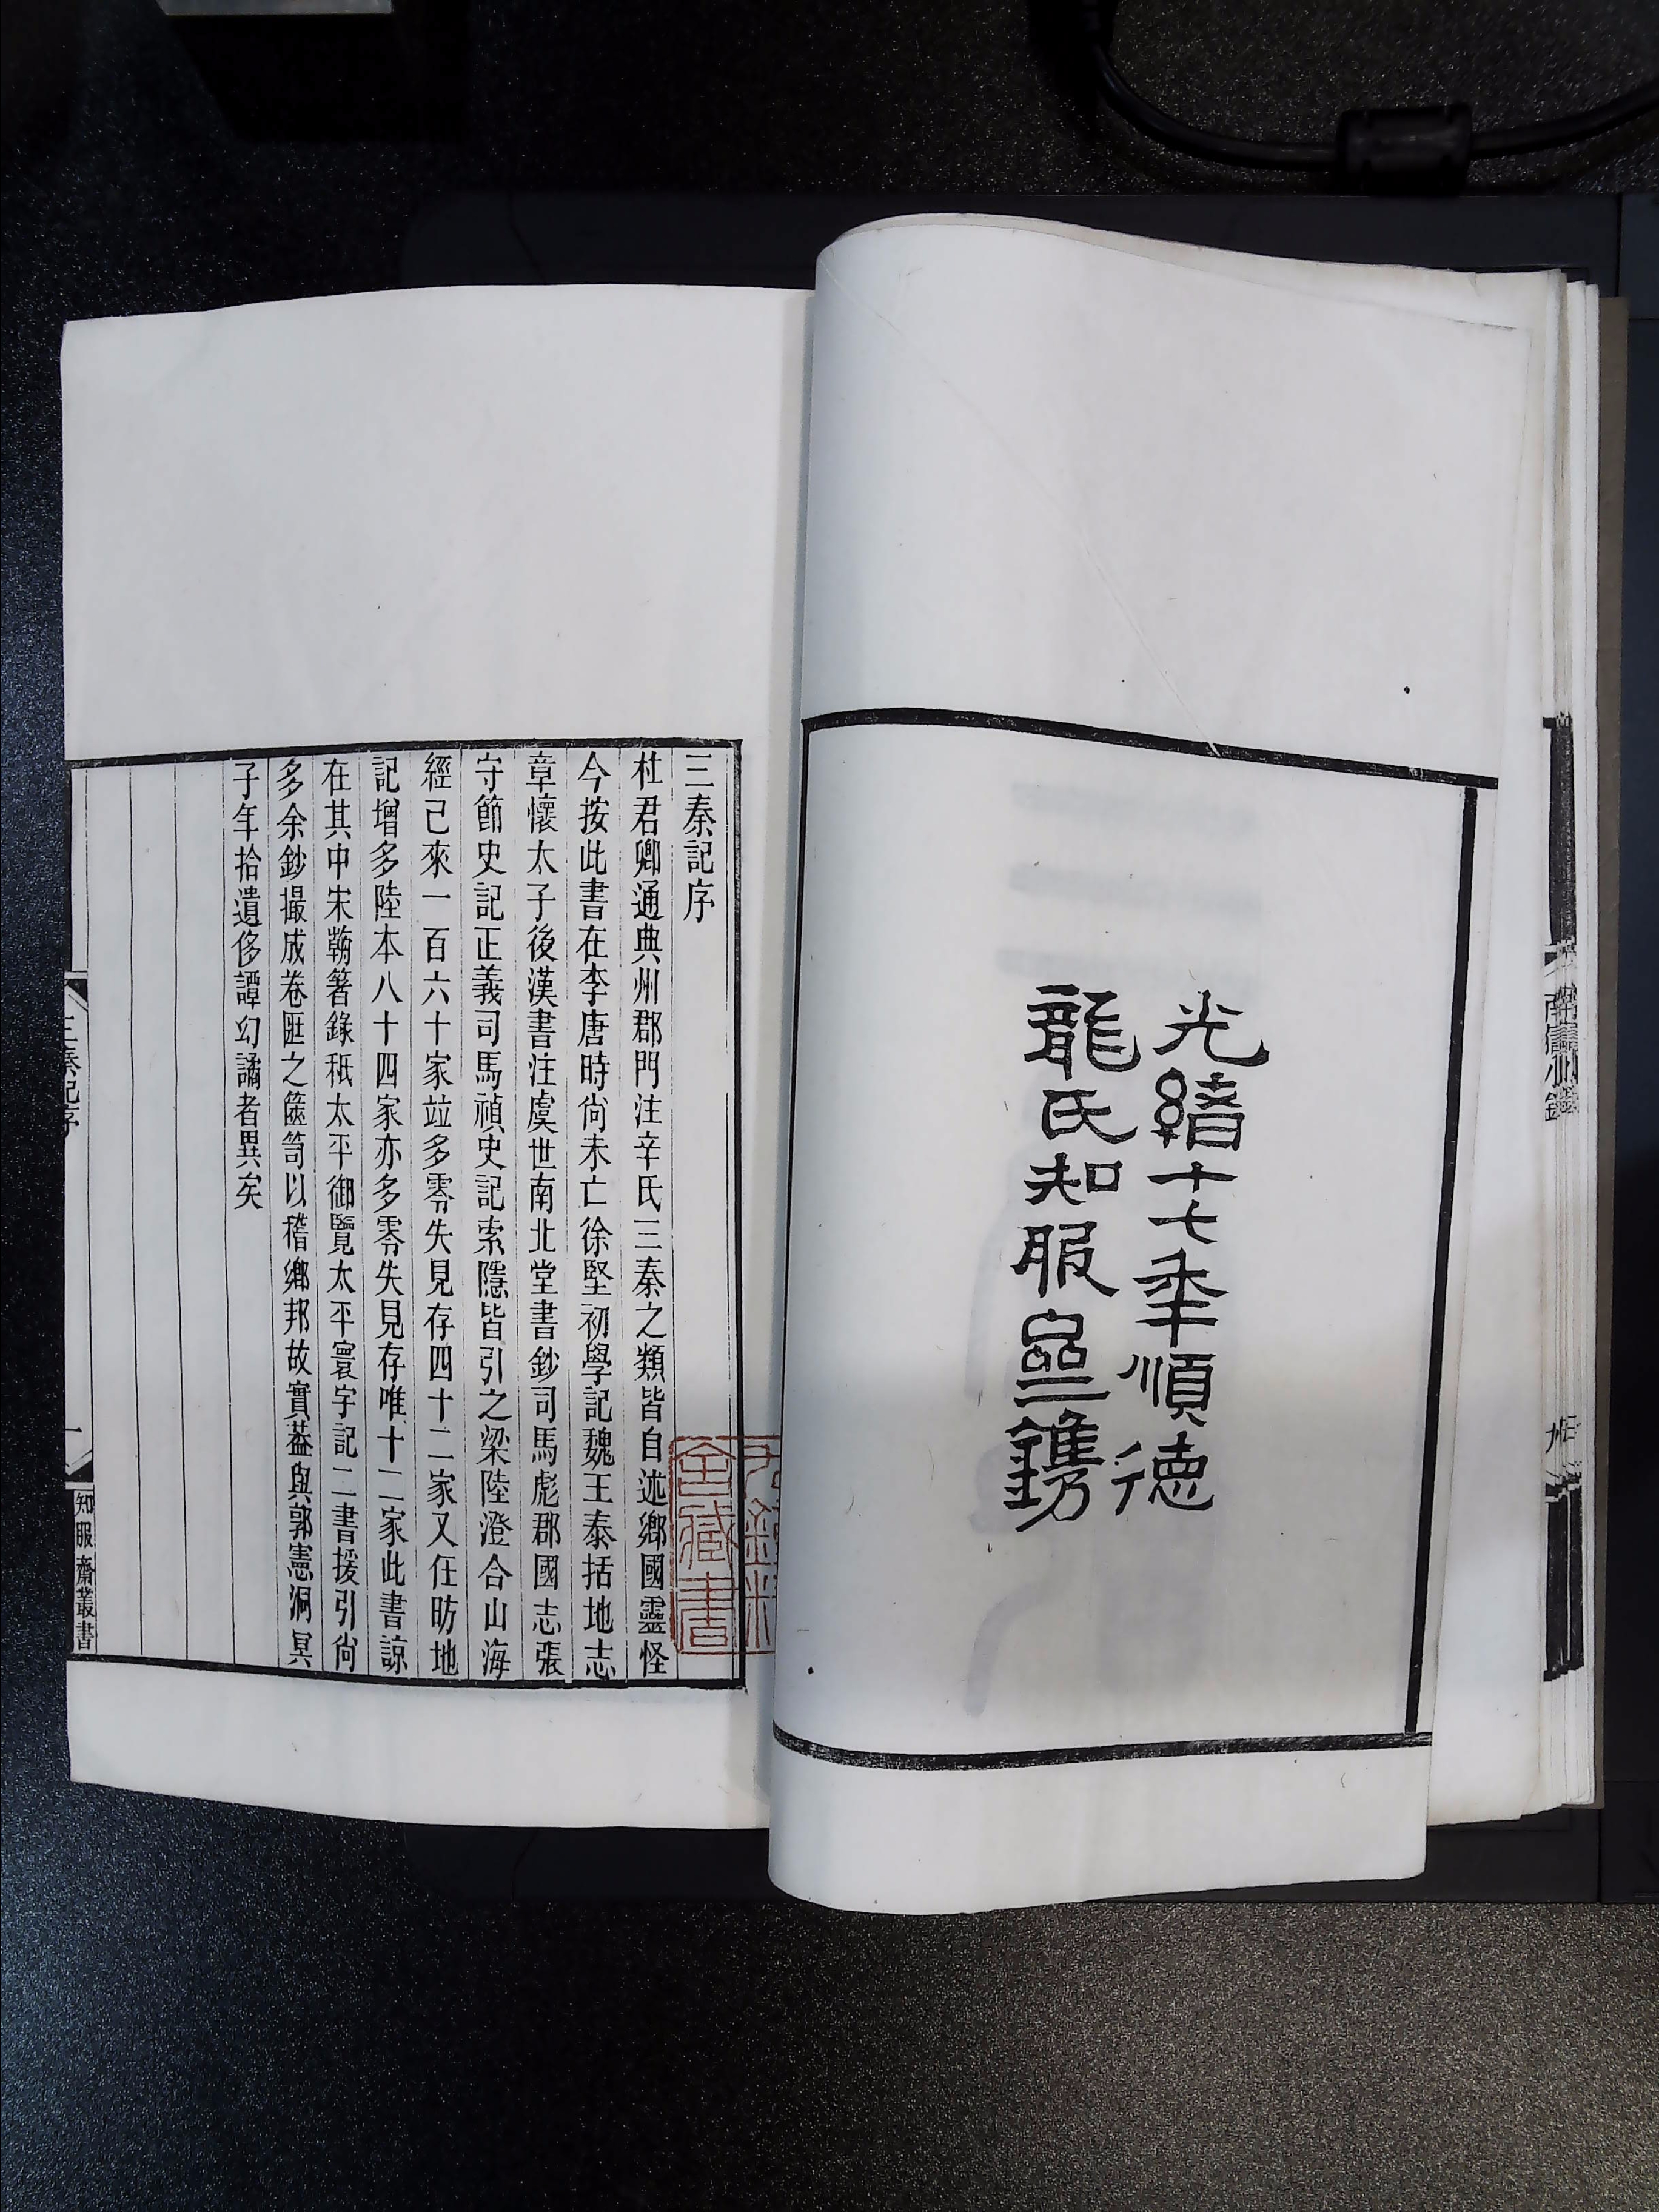 光緒十七年順德
龍氏知服齋鐫
三秦記序
杜君卿通典州郡門注辛氏三秦之類皆自述鄉國靈怪
今按此書在李唐時尚未亡徐堅初學記魏王泰括地志
章懷太子後漢書注虞世南北堂書鈔司馬彪郡國志張
守節史記正義司馬禎史記索隱皆引之梁陸澄合山海
經已來一百六十家竝多零失見存四十二家又任昉地
記增多陸本八十四家亦多零失見存唯十二家此書諒
在其中宋鞠著錄秖太平御覽太平寰宇記二書援引尚
多余鈔撮成卷匪之篋笥以稽鄉邦故實葢與郭憲洞冥
子年拾遺侈譚幻譎者異矣
三秦記序
一
知服齋叢書
藏書